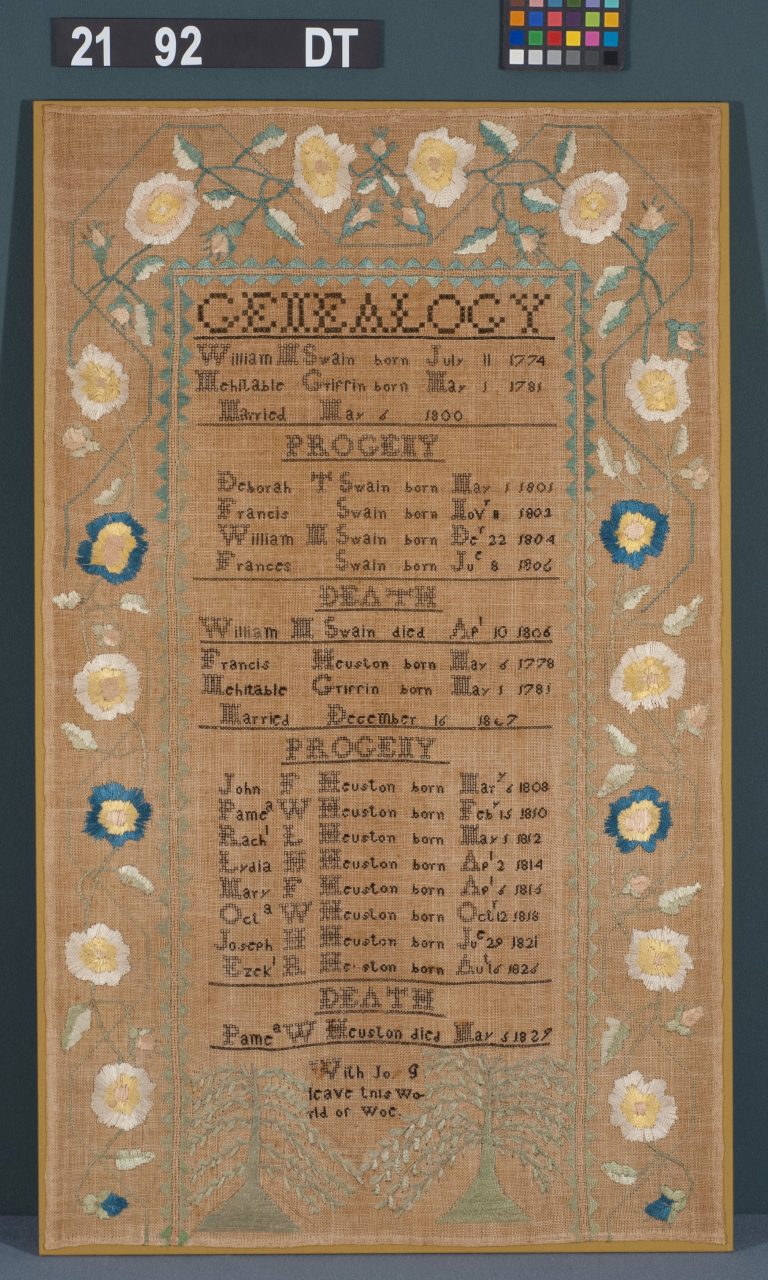 21 92 DT
GENEALOGY
William M Swain born July 11 1774
Mehitable Griffin born May 1 1781
Married May 6 1800
PROGENY
Deborah T Swain born May 1 1801
Francis Swain born Novr 11 1802
William M Swain born Decr 22 1804
Frances Swain born Jue 8 1806
DEATH
William M Swain died Apl 10 1806
Francis Heuston born May 6 1778
Mehitable Griffin born May 1 1781
Married December 16 1807
PROGENY
John F Heuston born Mary 6 1808
Pamea W Heuston born Febr 15 1810
Rachl L Heuston born May 1 1812
Lydia H Heuston born Apl 2 1814
Mary F Heuston born Apl 6 1816
Octa W Heuston born Octr 12 1818
Joseph H Heuston born Jue 29 1821
Ezekl R Heuston born Aut 16 1826
DEATH
Pamea W Heuston died May 5 1829
With Jo
leave this Wo-
rld of Woe.